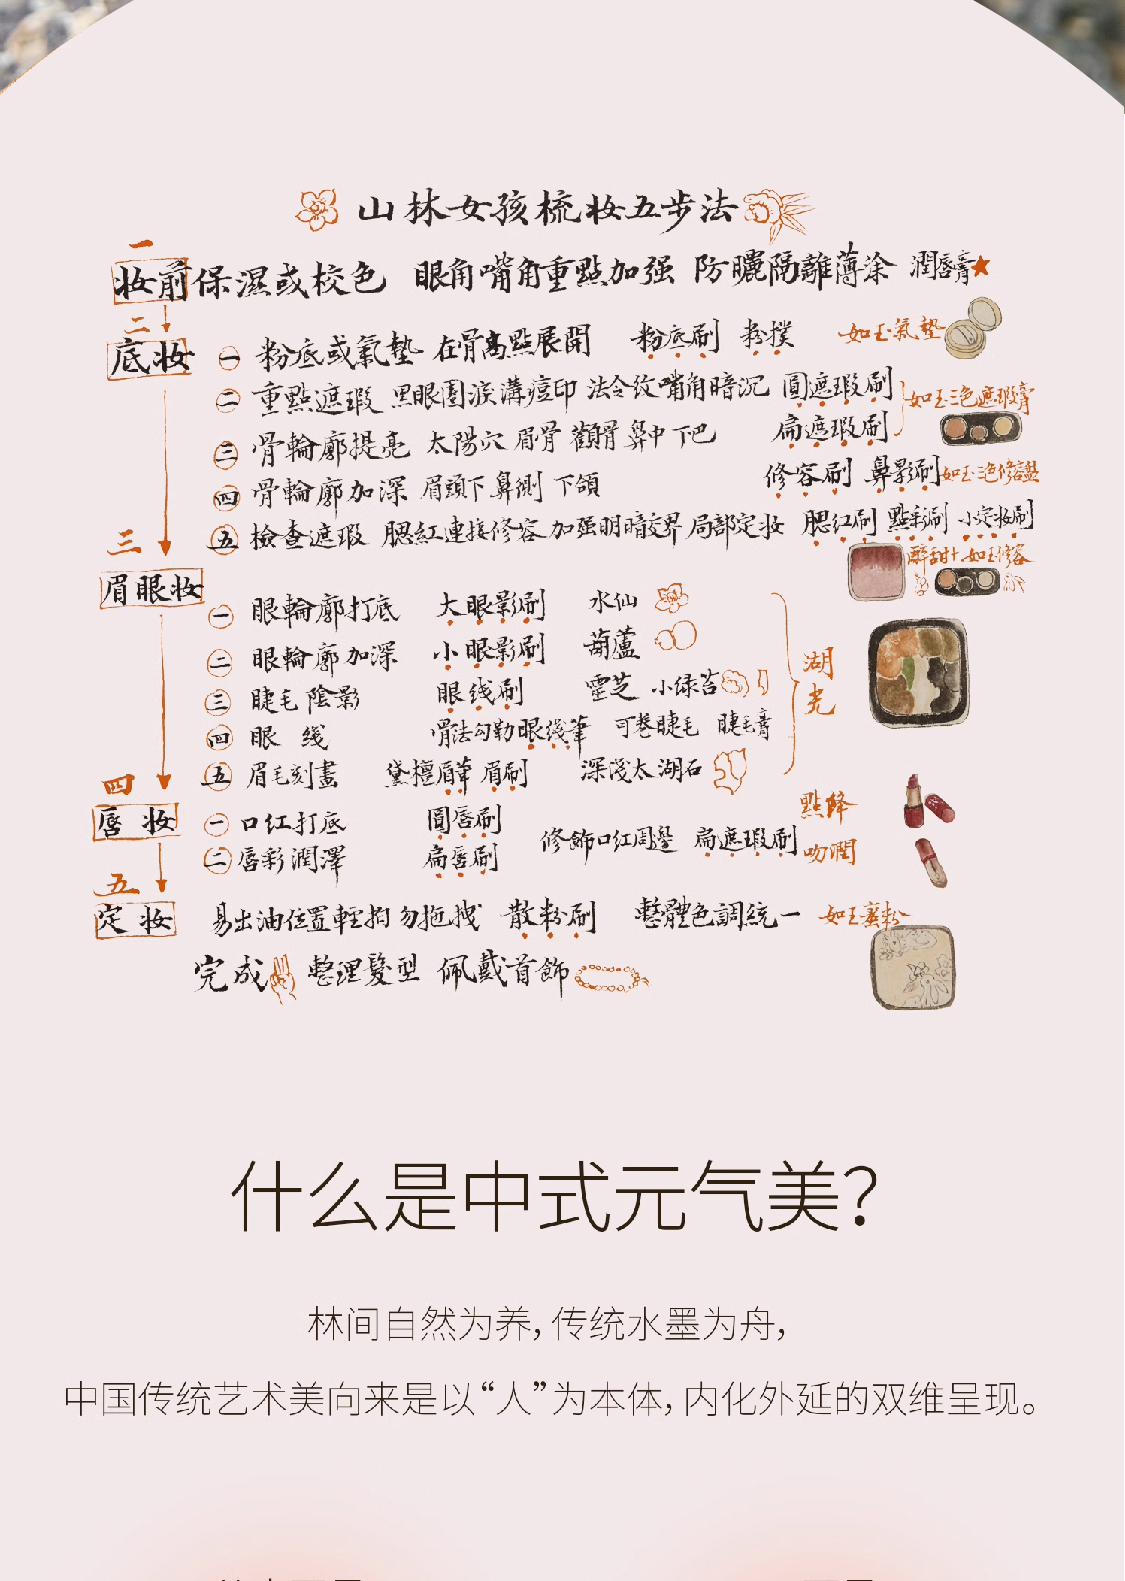 山林女孩梳妆五步法
一
妆前保濕或校色 眼角嘴角重點加强 防曬隔離薄涂 潤唇膏
二
底妆 一 粉底或氣墊 在骨高點展開 粉底刷 粉撲 如玉氣墊
二 重點遮瑕 黑眼圈淚溝痘印 法令纹嘴角暗沉 圓遮瑕刷 如玉三色遮瑕膏
扁遮瑕刷
三 骨輪廓提亮 太陽穴 眉骨 顴骨 鼻中 下巴
四 骨輪廓加深 眉頭下 鼻側 下頜 修容刷 鼻影刷 如玉三色修容盤
五 檢查遮瑕 腮紅連接修容 加强明暗交界 局部定妆 腮红刷 點彩刷 小定妆刷
醉甜汁 如玉修容
三
眉眼妆
一 眼輪廓打底 大眼影刷 水仙
二 眼輪廓加深 小眼影刷 葫蘆
湖光
三 睫毛陰影 眼线刷 靈芝 小绿苔
四 眼线 骨法勾勒眼线筆 可卷睫毛 睫毛膏
五 眉毛刻畫 黛檀眉筆 眉刷 深淺太湖石
四
唇妆 一 口红打底 圓唇刷 點絳
二 唇彩潤澤 扁唇刷 修飾口红周邊 扁遮瑕刷 吻潤
五
定妆 易出油位置輕掃勿拖拽 散粉刷 整體色調統一 如玉蜜粉
完成 整理髮型 佩戴首飾
什么是中式元气美?
林间自然为养,传统水墨为舟,
中国传统艺术美向来是以“人”为本体,内化外延的双维呈现。